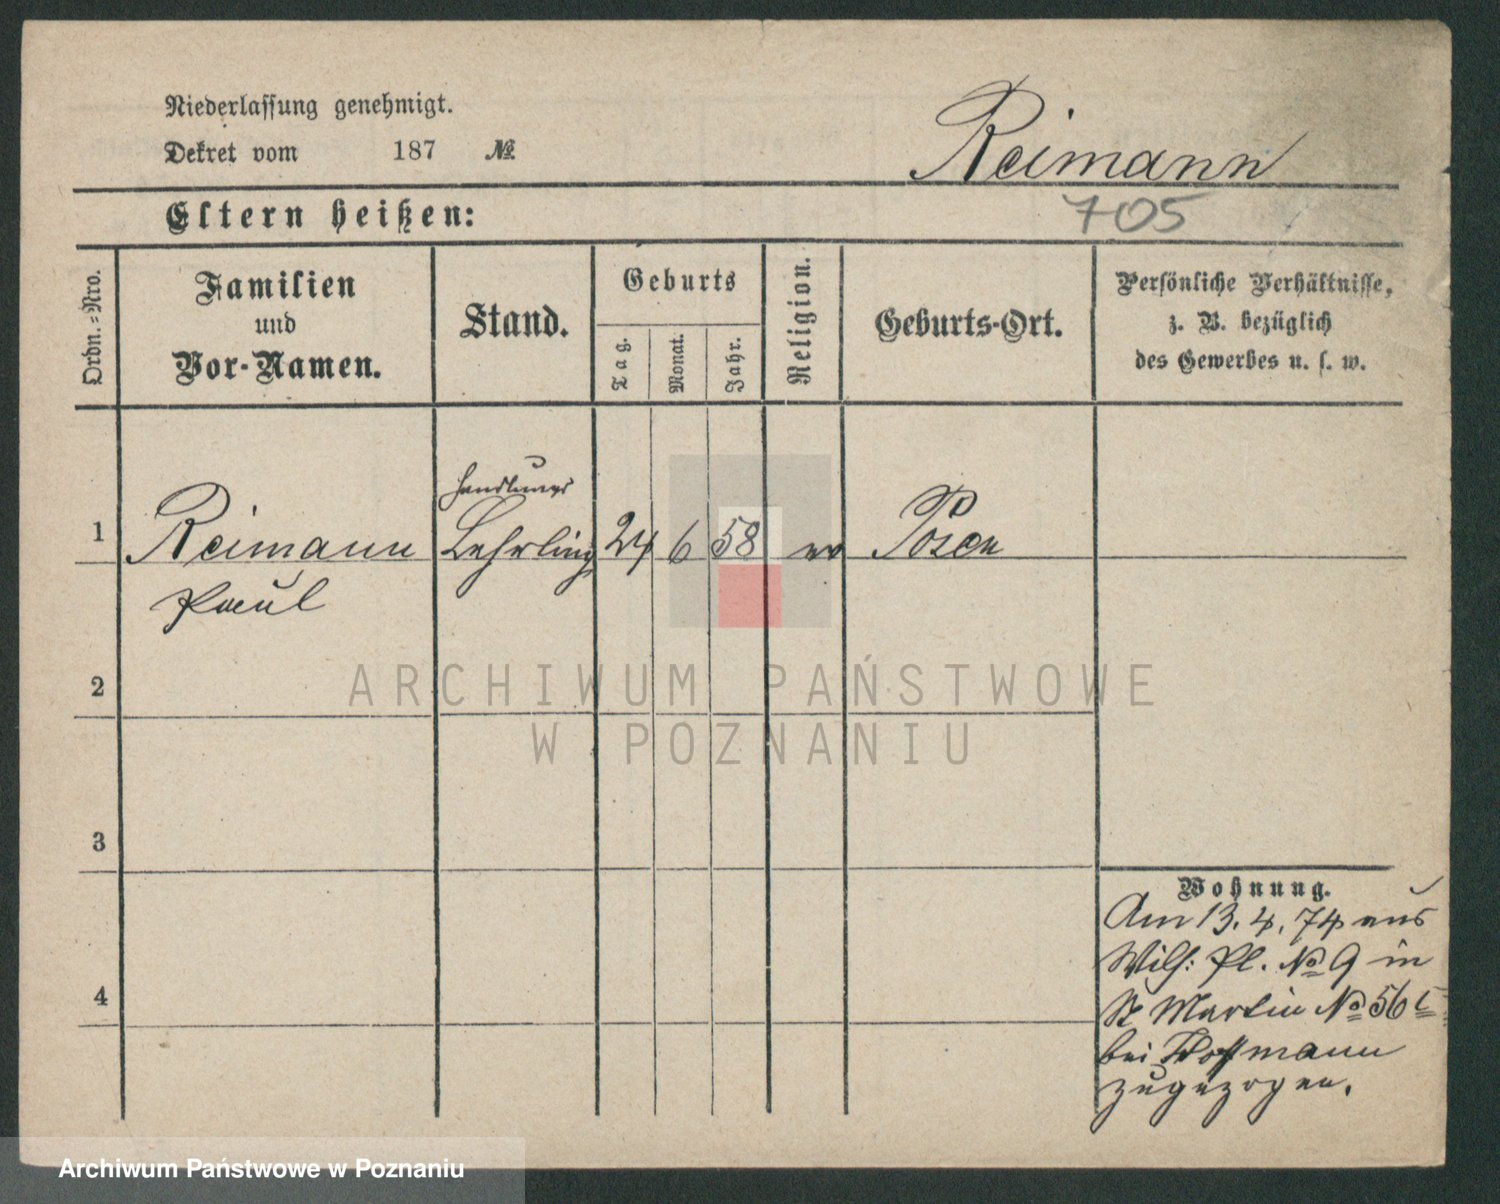 Niederlassung genehmigt.
Dekret vom 187 №
Reimann
Eltern heißen:
705
Ordn.-Nro.
Familien
und
Vor-Namen.
Stand.
Geburts
Tag.
Monat.
Jahr.
Religion.
Geburts-Ort.
Persönliche Verhältnisse,
z. B. bezüglich
des Gewerbes u. s. w.
Handlungs
1 Reimann Lehrling 24 6 58 ev Posen
Paul
2
3
4
Wohnung.
Am 13. 4. 74 aus
Wilh: Pl. No 9 in
St Martin No 56
bei Hoffmann
zugezogen.
ARCHIWUM PAŃSTWOWE
W POZNANIU
Archiwum Państwowe w Poznaniu